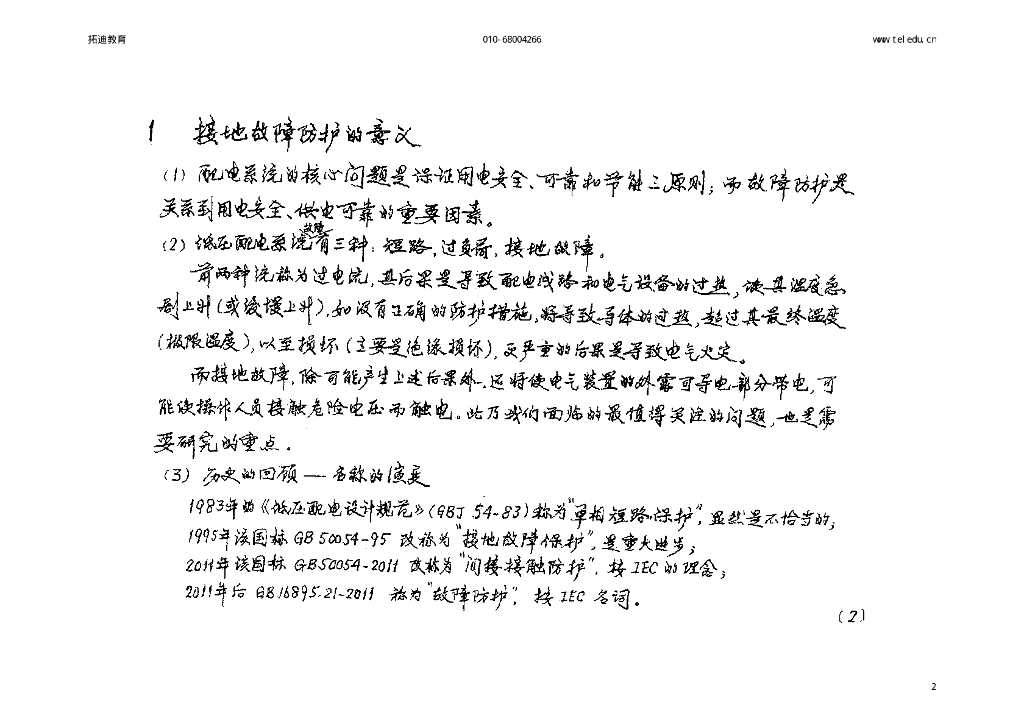 拓迪教育 010-68004266 www.teledu.cn
1 接地故障防护的意义
(1) 配电系统的核心问题是保证用电安全、可靠和节能三原则；而故障防护是
关系到用电安全、供电可靠的重要因素。
(2) 低压配电系统故障有三种：短路，过负荷，接地故障。
前两种统称为过电流，其后果是导致配电线路和电气设备的过热，使其温度急
剧上升(或缓慢上升)，如没有正确的防护措施，将导致导体的过热，超过其最终温度
(极限温度)，以至损坏(主要是绝缘损坏)，更严重的后果是导致电气火灾。
而接地故障，除可能产生上述后果外，还将使电气装置的外露可导电部分带电，可
能使操作人员接触危险电压而触电。此乃我们面临的最值得关注的问题，也是需
要研究的重点。
(3) 历史的回顾——名称的演变
1983年的《低压配电设计规范》(GBJ 54-83)称为"单相短路保护"，显然是不恰当的；
1995年该国标 GB 50054-95 改称为"接地故障保护"，是重大进步；
2011年该国标 GB50054-2011 改称为"间接接触防护"，按 IEC 的理念；
2011年后 GB16895.21-2011 称为"故障防护"，按 IEC 名词。
(2)
2